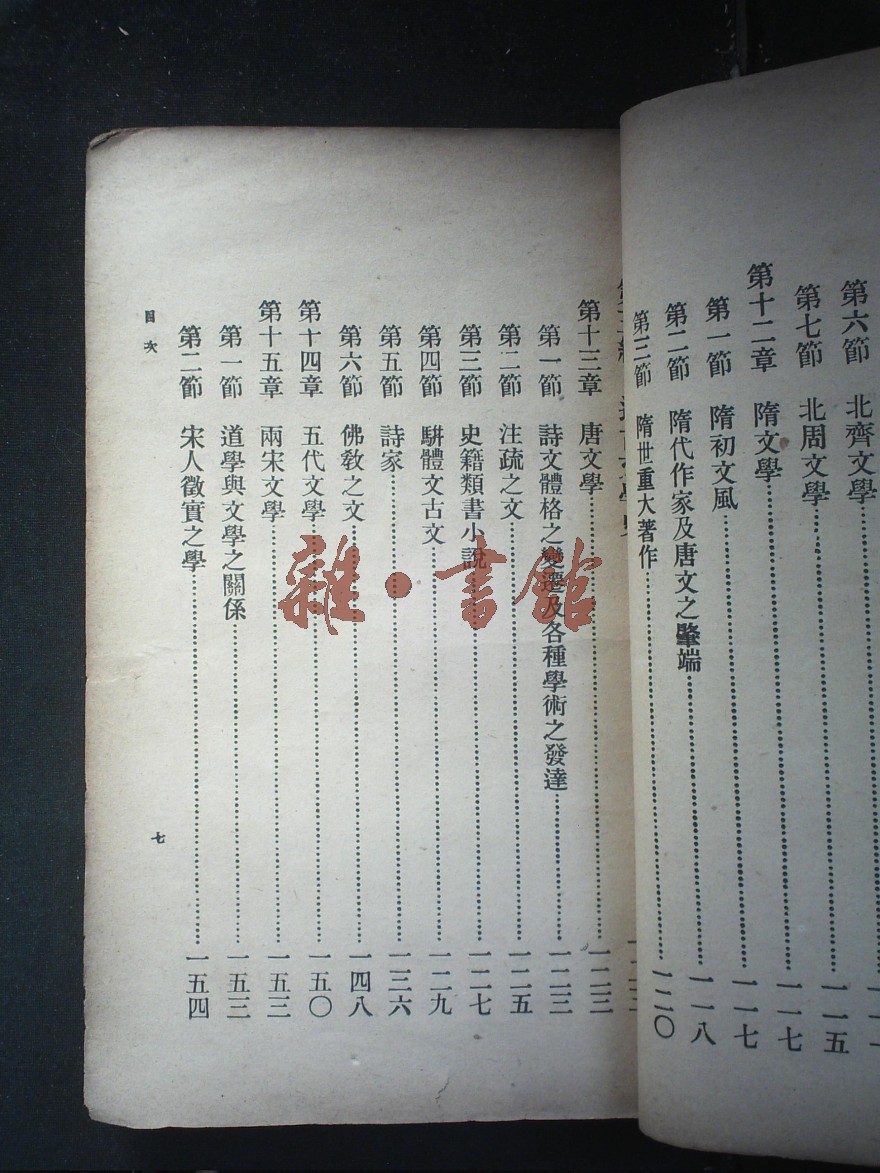 第六節 北齊文學
第七節 北周文學 一一五
第十二章 隋文學 一一七
第一節 隋初文風 一一七
第二節 隋代作家及唐文之肇端 一一八
第三節 隋世重大著作 一二〇
第十三章 唐文學 一二三
第一節 詩文體格之變遷及各種學術之發達 一二三
第二節 注疏之文 一二五
第三節 史籍類書小說 一二七
第四節 駢體文古文 一二九
第五節 詩家 一三六
第六節 佛教之文 一四八
第十四章 五代文學 一五〇
第十五章 兩宋文學 一五三
第一節 道學與文學之關係 一五三
第二節 宋人徵實之學 一五四
目次
七
雜·書館